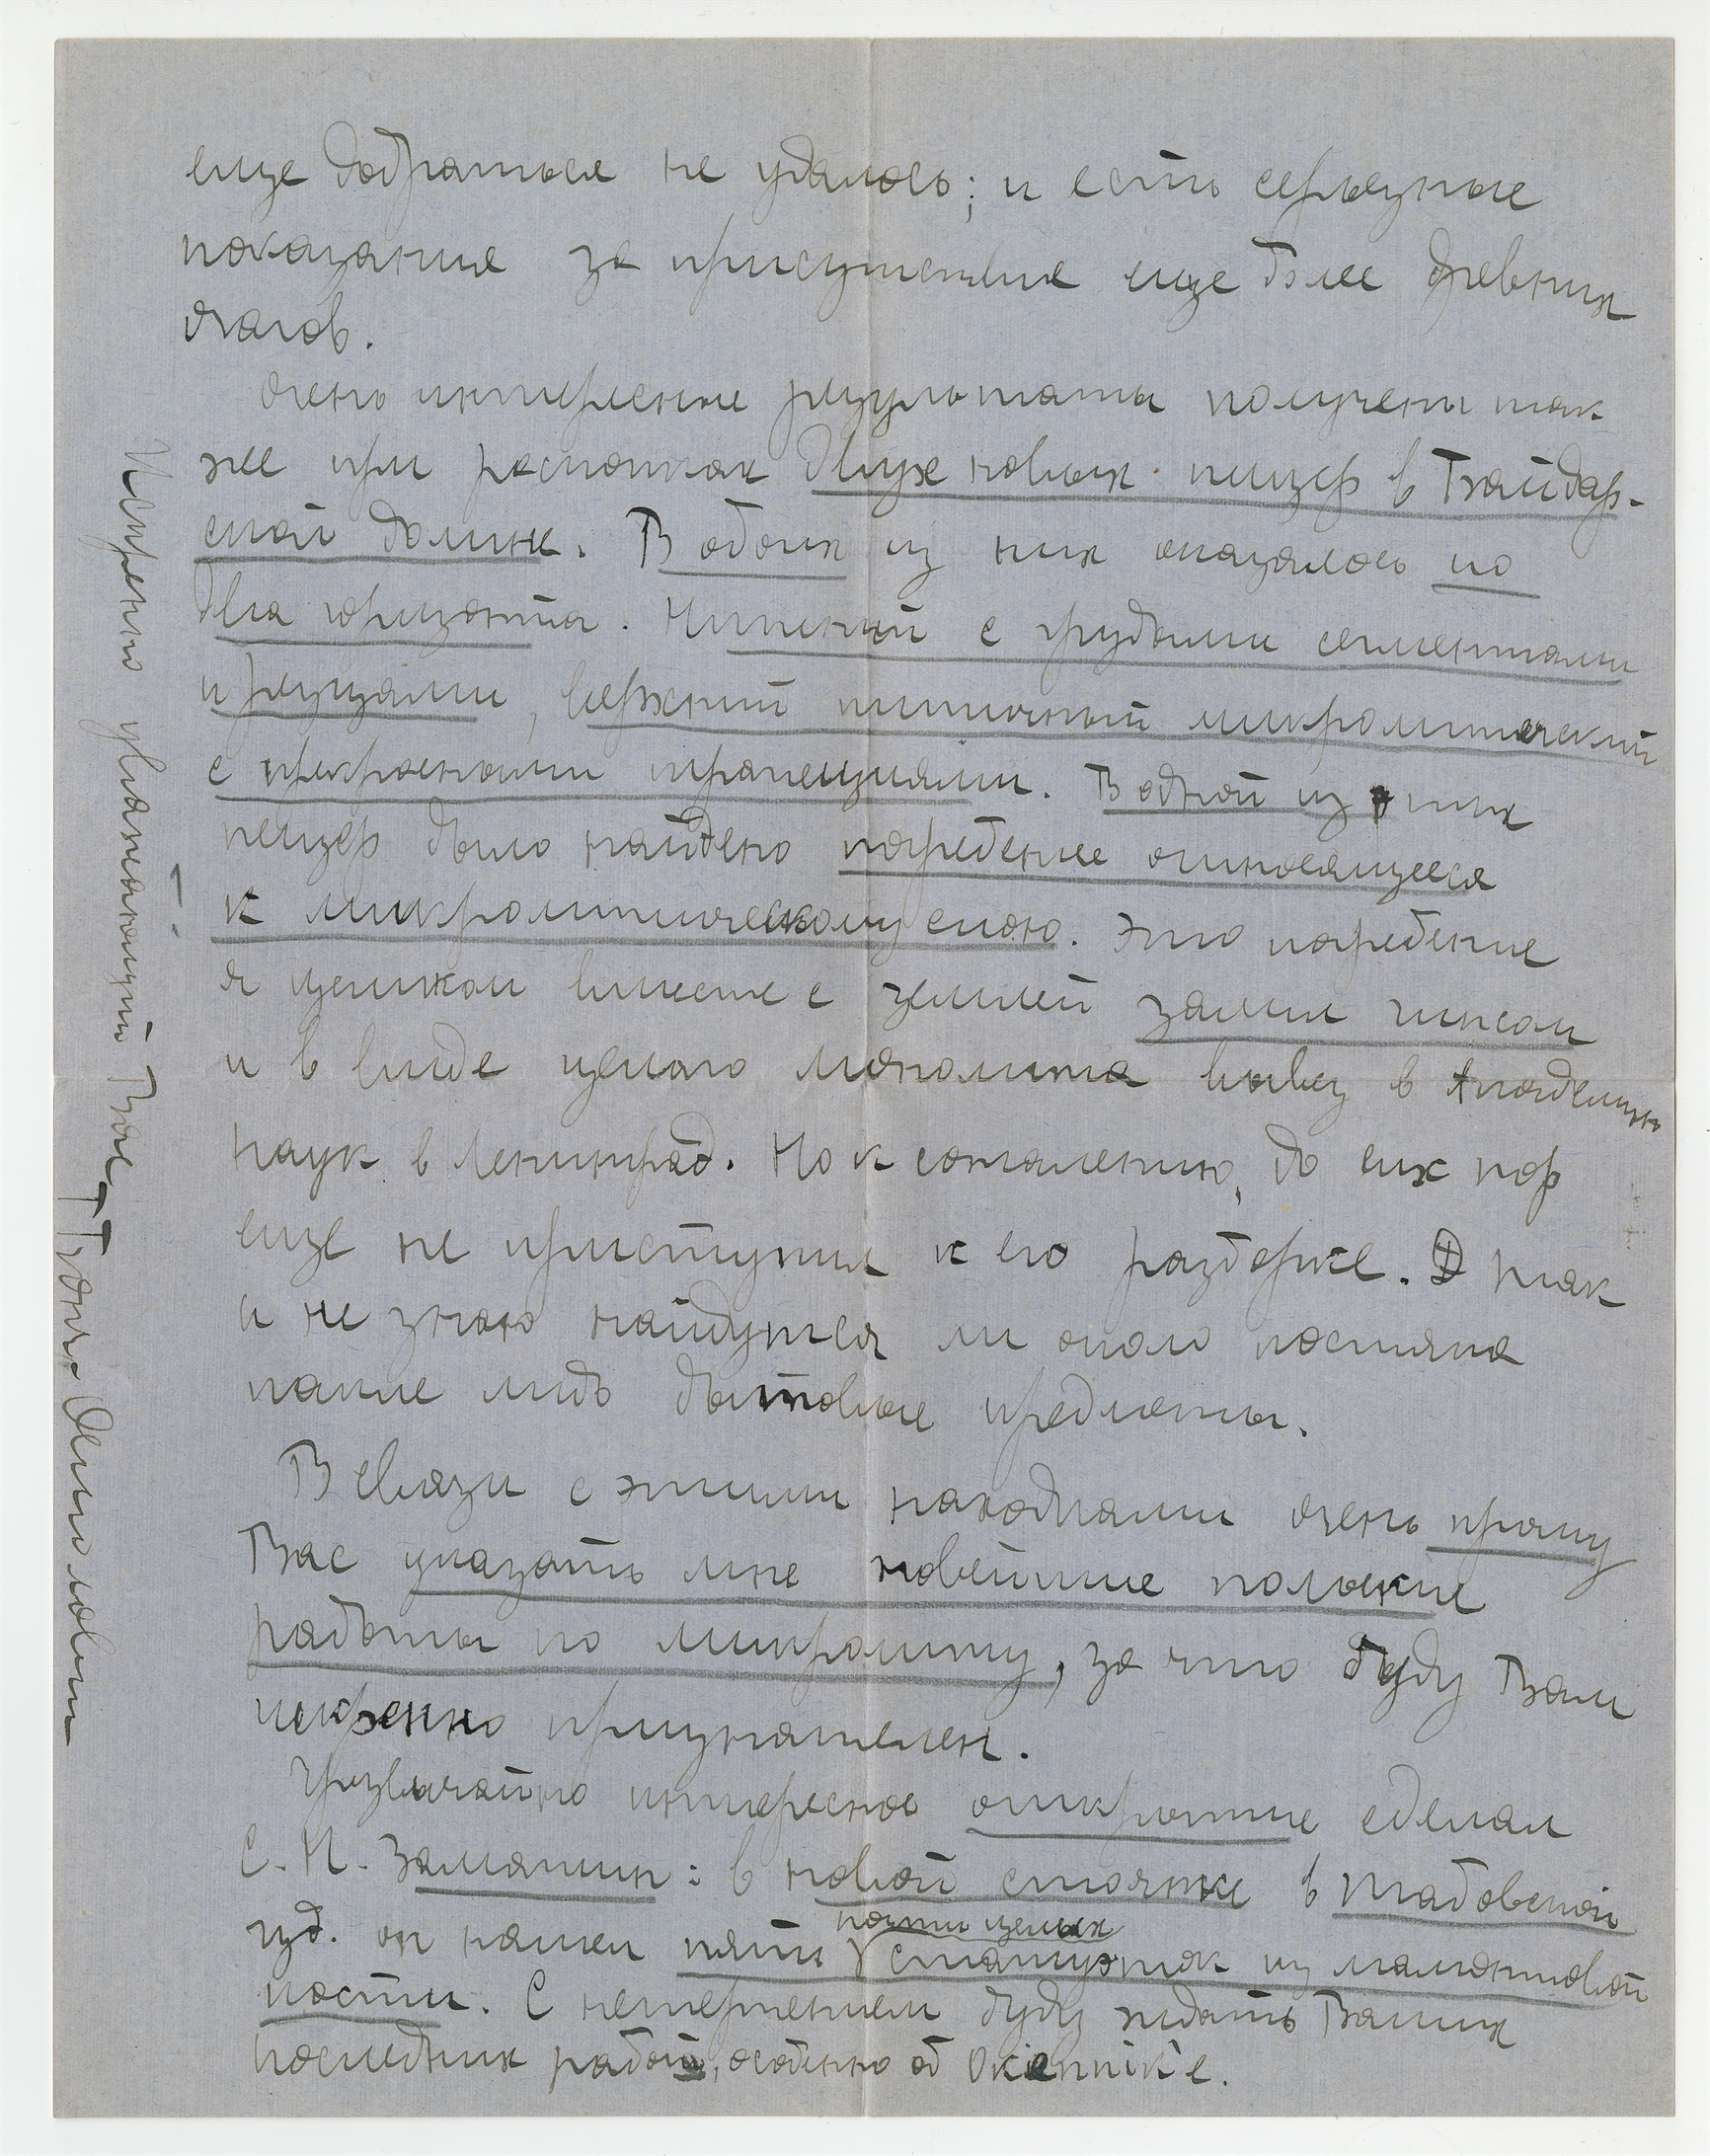 еще добраться не удалось; и есть серьезные
показания за присутствие еще более древних
очагов.
Очень интересные результаты получены так-
же при раскопках двух новых пещер в Байдар-
ской долине. В обоих из них оказалось по
два горизонта. Нижний с грубыми сегментами
и резцами, верхний типичный микролитический
с прекрасными трапециями. В одной из них
пещер было найдено погребение относящееся
к микролитическому слою. Это погребение
я целиком вместе с землей залил гипсом
и в виде целого монолита вывез в Академию
наук в Ленинград. Но к сожалению, до сих пор
еще не приступил к его разборке. Я так
и не знаю найдутся ли около костяка
какие либо бытовые предметы.
В связи с этими находками очень прошу
Вас указать мне новейшие польские
работы по микролиту, за что буду Вам
искренно признателен.
Чрезвычайно интересное открытие сделал
С. Н. Замятнин: в новой стоянке в
губ. он нашел пять почти целых статуэток из мамонтовой
кости. С нетерпением буду ждать Ваших
последних работ, особенно об Okiennik'e.
Искренно уважающий Вас Г Бонч-Осмоловский